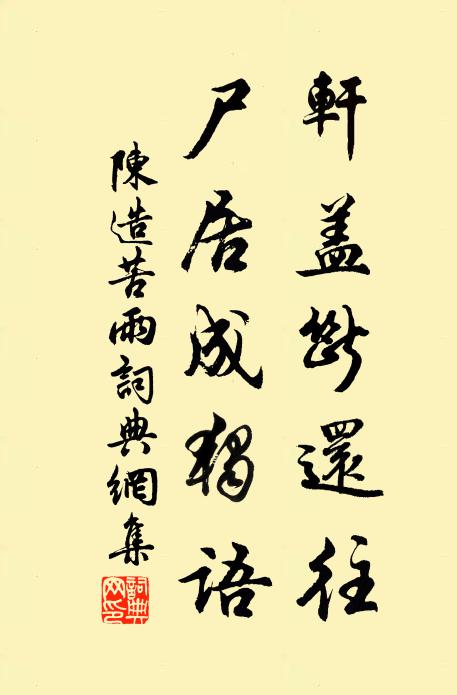 軒蓋斷還往
尸居成獨語
陳造苦雨詞典網集